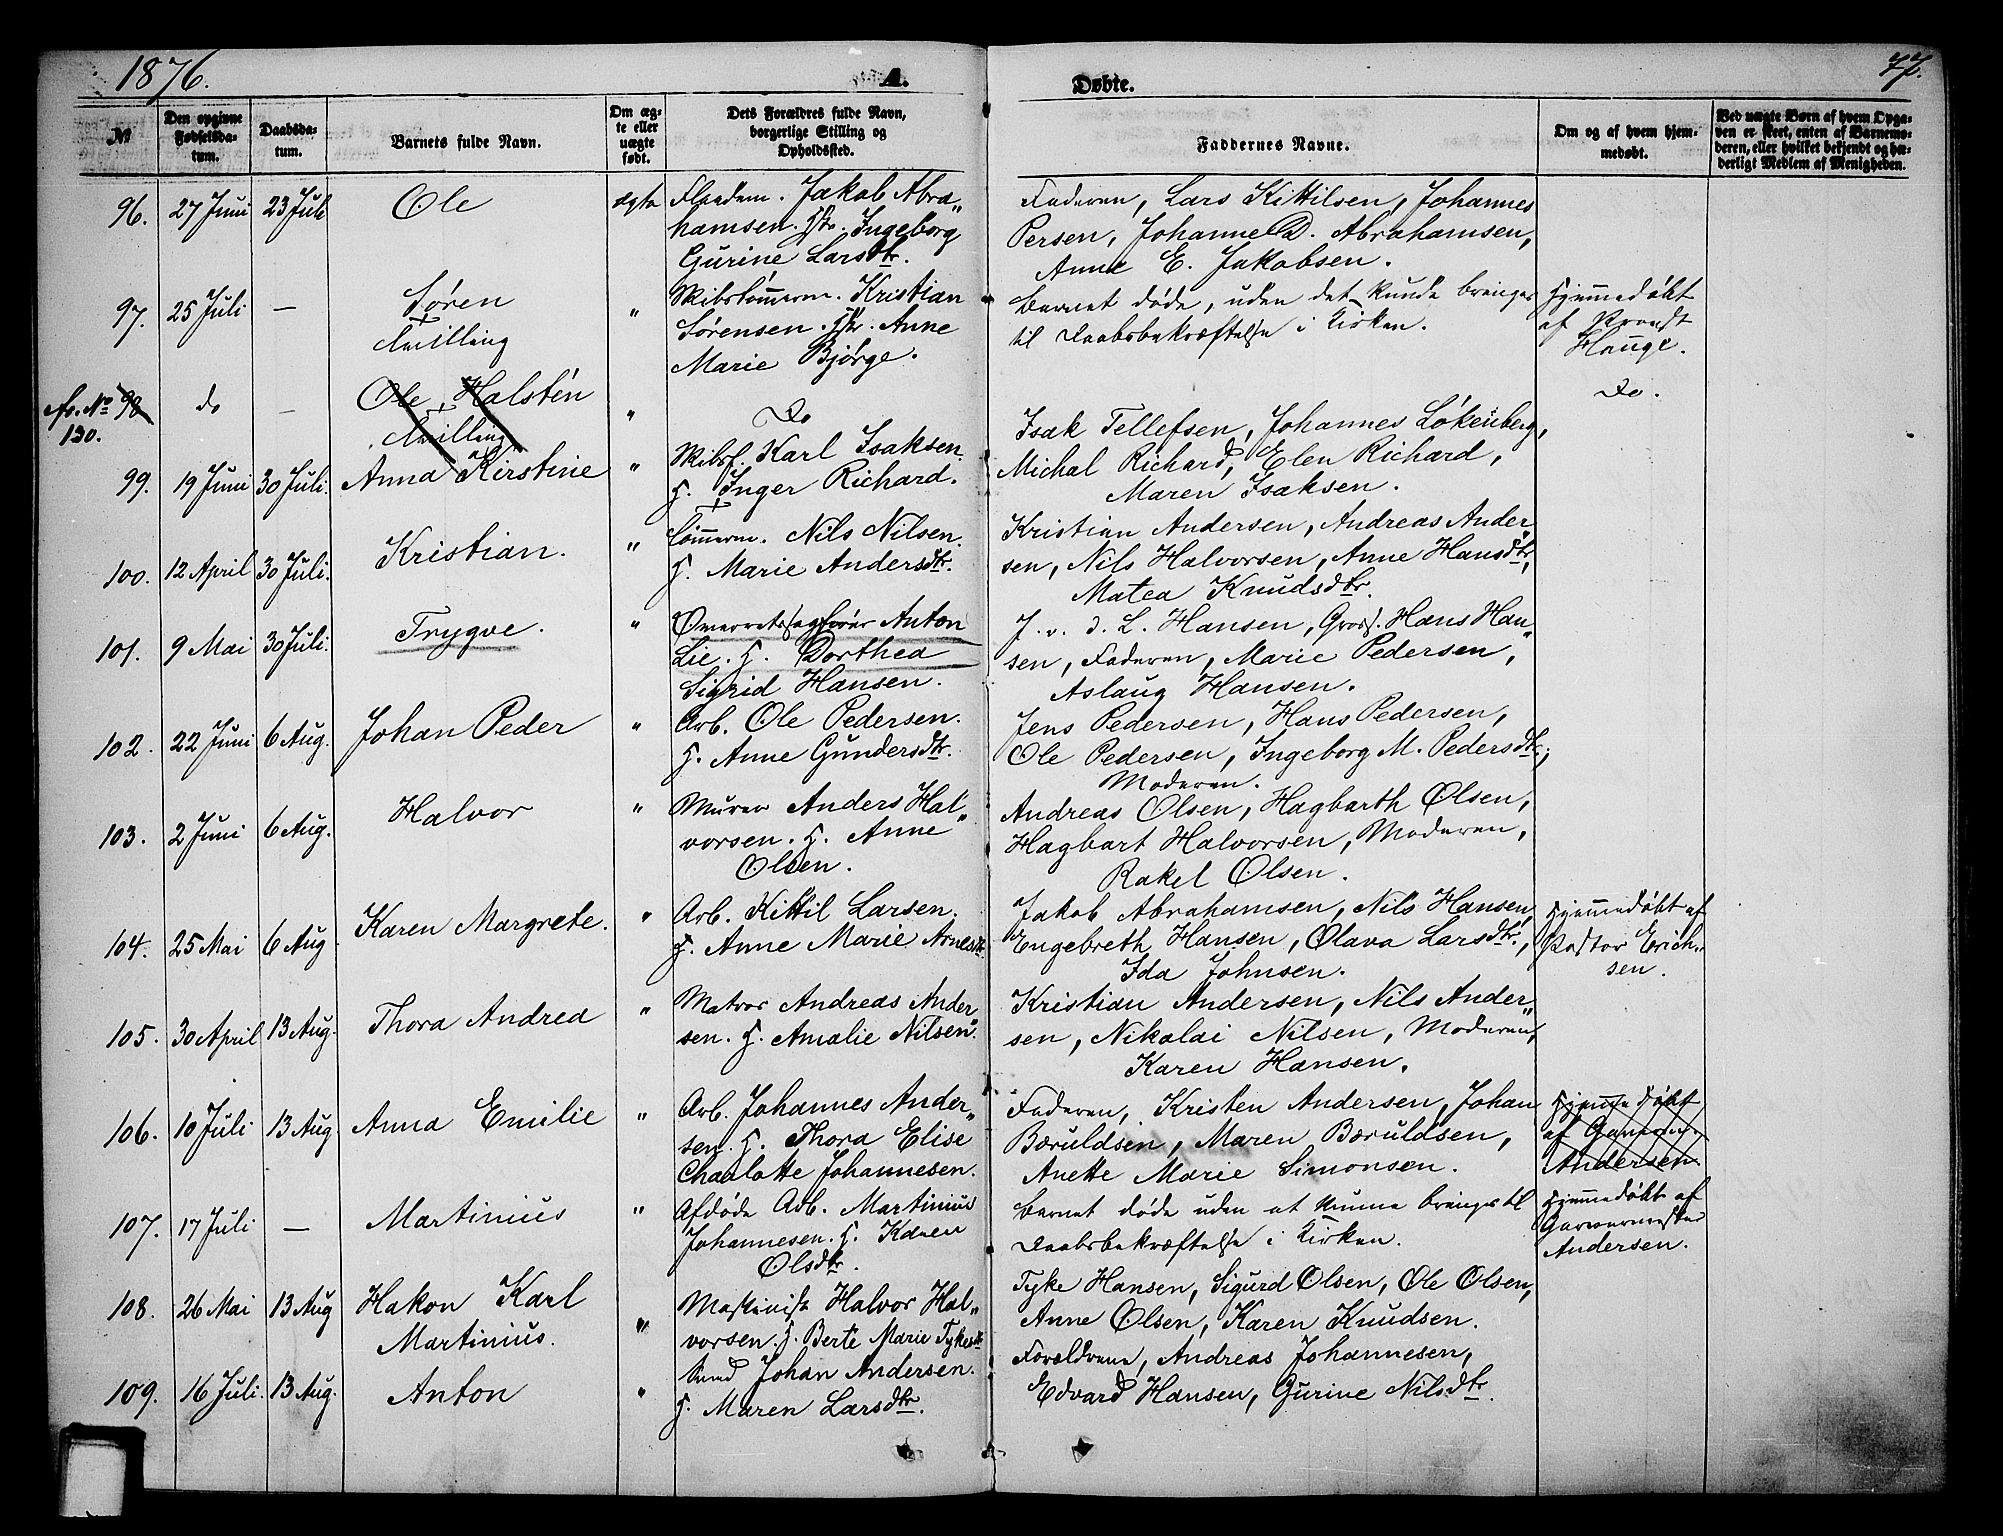 1876.
A.
Døbte.
77.
№
Den opgivne Fødselsda-tum.
Daabsda-tum.
Barnets fulde Navn.
Om æg-te eller uægte født.
Dets Forældres fulde Navn, borgerlige Stilling og Opholdssted.
Faddernes Navne.
Om og af hvem hjem-medøbt.
Ved uægte Børn af hvem Opga-ven er skeet, enten af Barnemo-deren, eller hvilket bekjendt og hæ-derligt Medlem af Menigheden.
96. 27 Juni 23 Juli Ole ægte
Flaadem. Jakob Abra„
hamsen. Hstr. Ingeborg
Gurine Larsdtr.
Faderen, Lars Kittilsen, Johannes
Persen, Johanne D. Abrahamsen,
Anne E. Jakobsen.
97. 25 Juli — Søren „
Tvilling
Skibstømmerm. Kristian
Sørensen. Hstr. Anne
Marie Bjørge.
Barnet døde, uden det kunde bringes
til Daabsbekræftelse i Kirken.
Hjemmedøbt
af Provst
Hauge.
fr. No 98 do — Ole Halsten „
130.
Tvilling
Do
Do.
99. 19 Juni 30 Juli. Anna Kirstine „
Skibsf. Karl Isaksen.
H. Inger Richard.
Isak Tellefsen, Johannes Løkenberg,
Michal Richard, Elen Richard,
Maren Isaksen.
100. 12 April 30 Juli. Kristian. „
Tømmerm. Nils Nilsen.
H. Marie Andersdtr.
Kristian Andersen, Andreas Ander„
sen, Nils Halvorsen, Anne Hansdtr,
Matea Knudsdtr.
101. 9 Mai 30 Juli. Trygve. „
Overretssagfører Anton
Lie. H. Dorthea
Sigrid Hansen.
J. v. d. L. Hansen, Gross. Hans Han„
sen, Faderen, Marie Pedersen,
Aslaug Hansen.
102. 22 Juni 6 Aug. Johan Peder „
Arb. Ole Pedersen.
H. Anne Gundersdtr.
Jens Pedersen, Hans Pedersen,
Ole Pedersen, Ingeborg M. Pedersdtr.,
Moderen.
103. 2 Juni 6 Aug. Halvor „
Murer Anders Hal„
vorsen. H. Anne
Olsen.
Andreas Olsen, Hagbarth Olsen,
Hagbart Halvorsen, Moderen,
Rakel Olsen.
104. 25 Mai 6 Aug Karen Margrete. „
Arb. Kittil Larsen.
H. Anne Marie Arnesdtr.
Jakob Abrahamsen, Nils Hansen,
Engebreth Hansen, Olava Larsdtr.,
Ida Johnsen.
Hjemmedøbt af
Pastor Erich-
sen.
105. 30 April 13 Aug. Thora Andrea „
Matros Andreas Ander„
sen. H. Amalie Nilsen.
Kristian Andersen, Nils Ander„
sen, Nikolai Nilsen, Moderen,
Karen Hansen.
106. 10 Juli 13 Aug Anna Emilie „
Arb. Johannes Ander„
sen. H. Thora Elise
Charlotte Johannesen.
Faderen, Kristen Andersen, Johan
Bæruldsen, Maren Bæruldsen,
Anette Marie Simonsen.
Hjemmedøbt
af Garverm.
Andersen
107. 17 Juli — Martinius „
Afdøde Arb. Martinius
Johannesen. H. Karen
Olsdtr.
Barnet døde uden at kunne bringes til
Daabsbekræftelse i Kirken.
Hjemmedøbt af
Garvermester
Andersen.
108. 26 Mai 13 Aug Hakon Karl „
Martinius.
Maskinist Halvor Hal„
vorsen. H. Berte Marie Tykesdtr
Tyke Hansen, Sigurd Olsen, Ole Olsen,
Anne Olsen, Karen Knudsen.
109. 16 Juli. 13 Aug. Anton „
Johan Andersen.
H. Maren Larsdtr.
Forældrene, Andreas Johannesen,
Edvard Hansen, Gurine Nilsdtr.